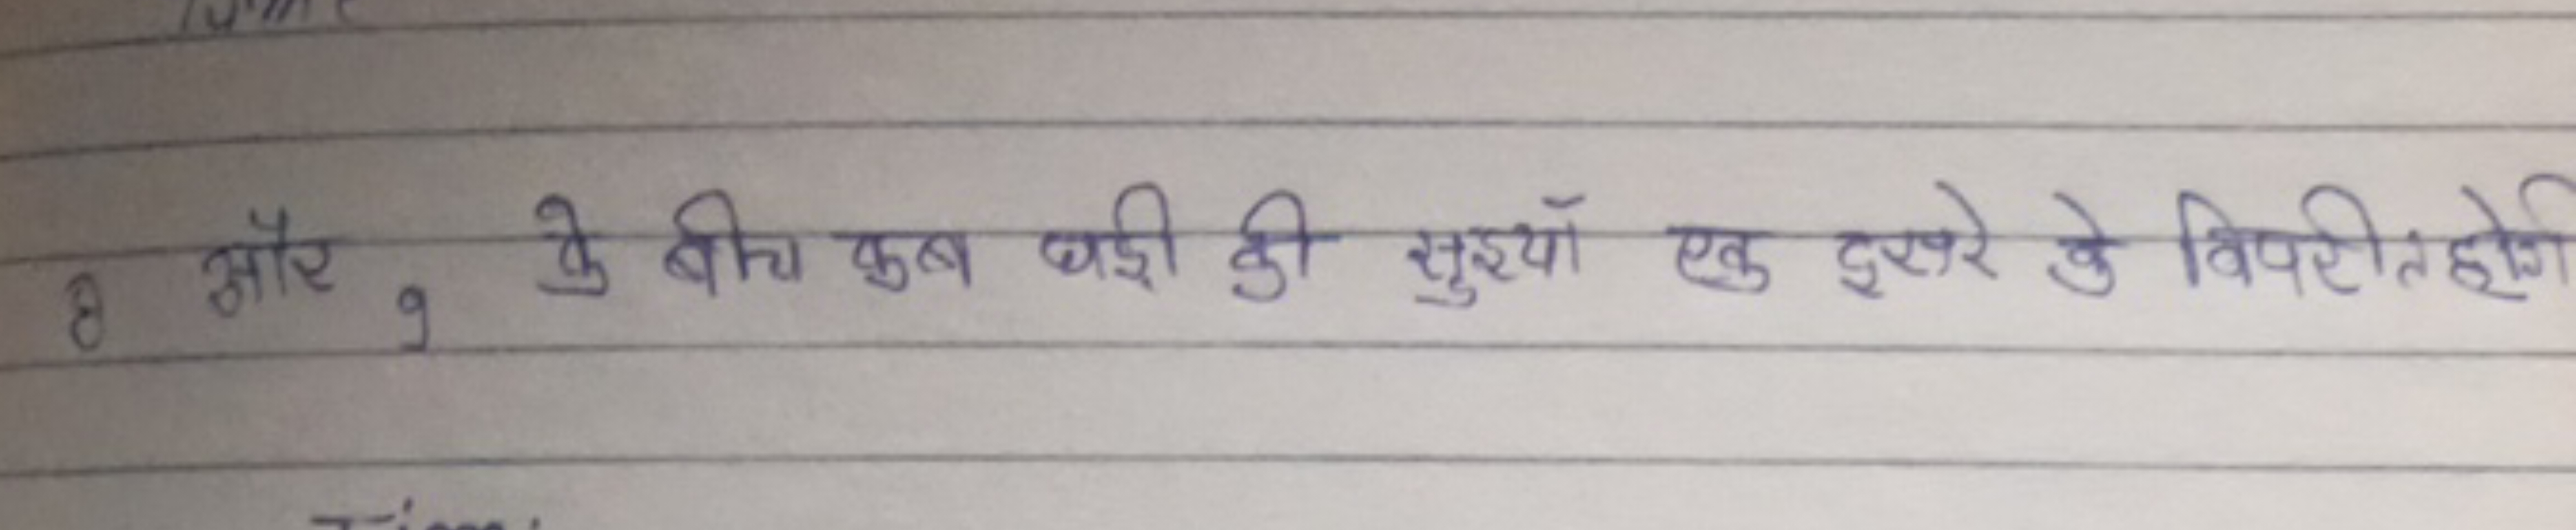 8 और 9 के बीच कब घड़ी की सुइयाँ एक दुसरे के विपरीत होगी